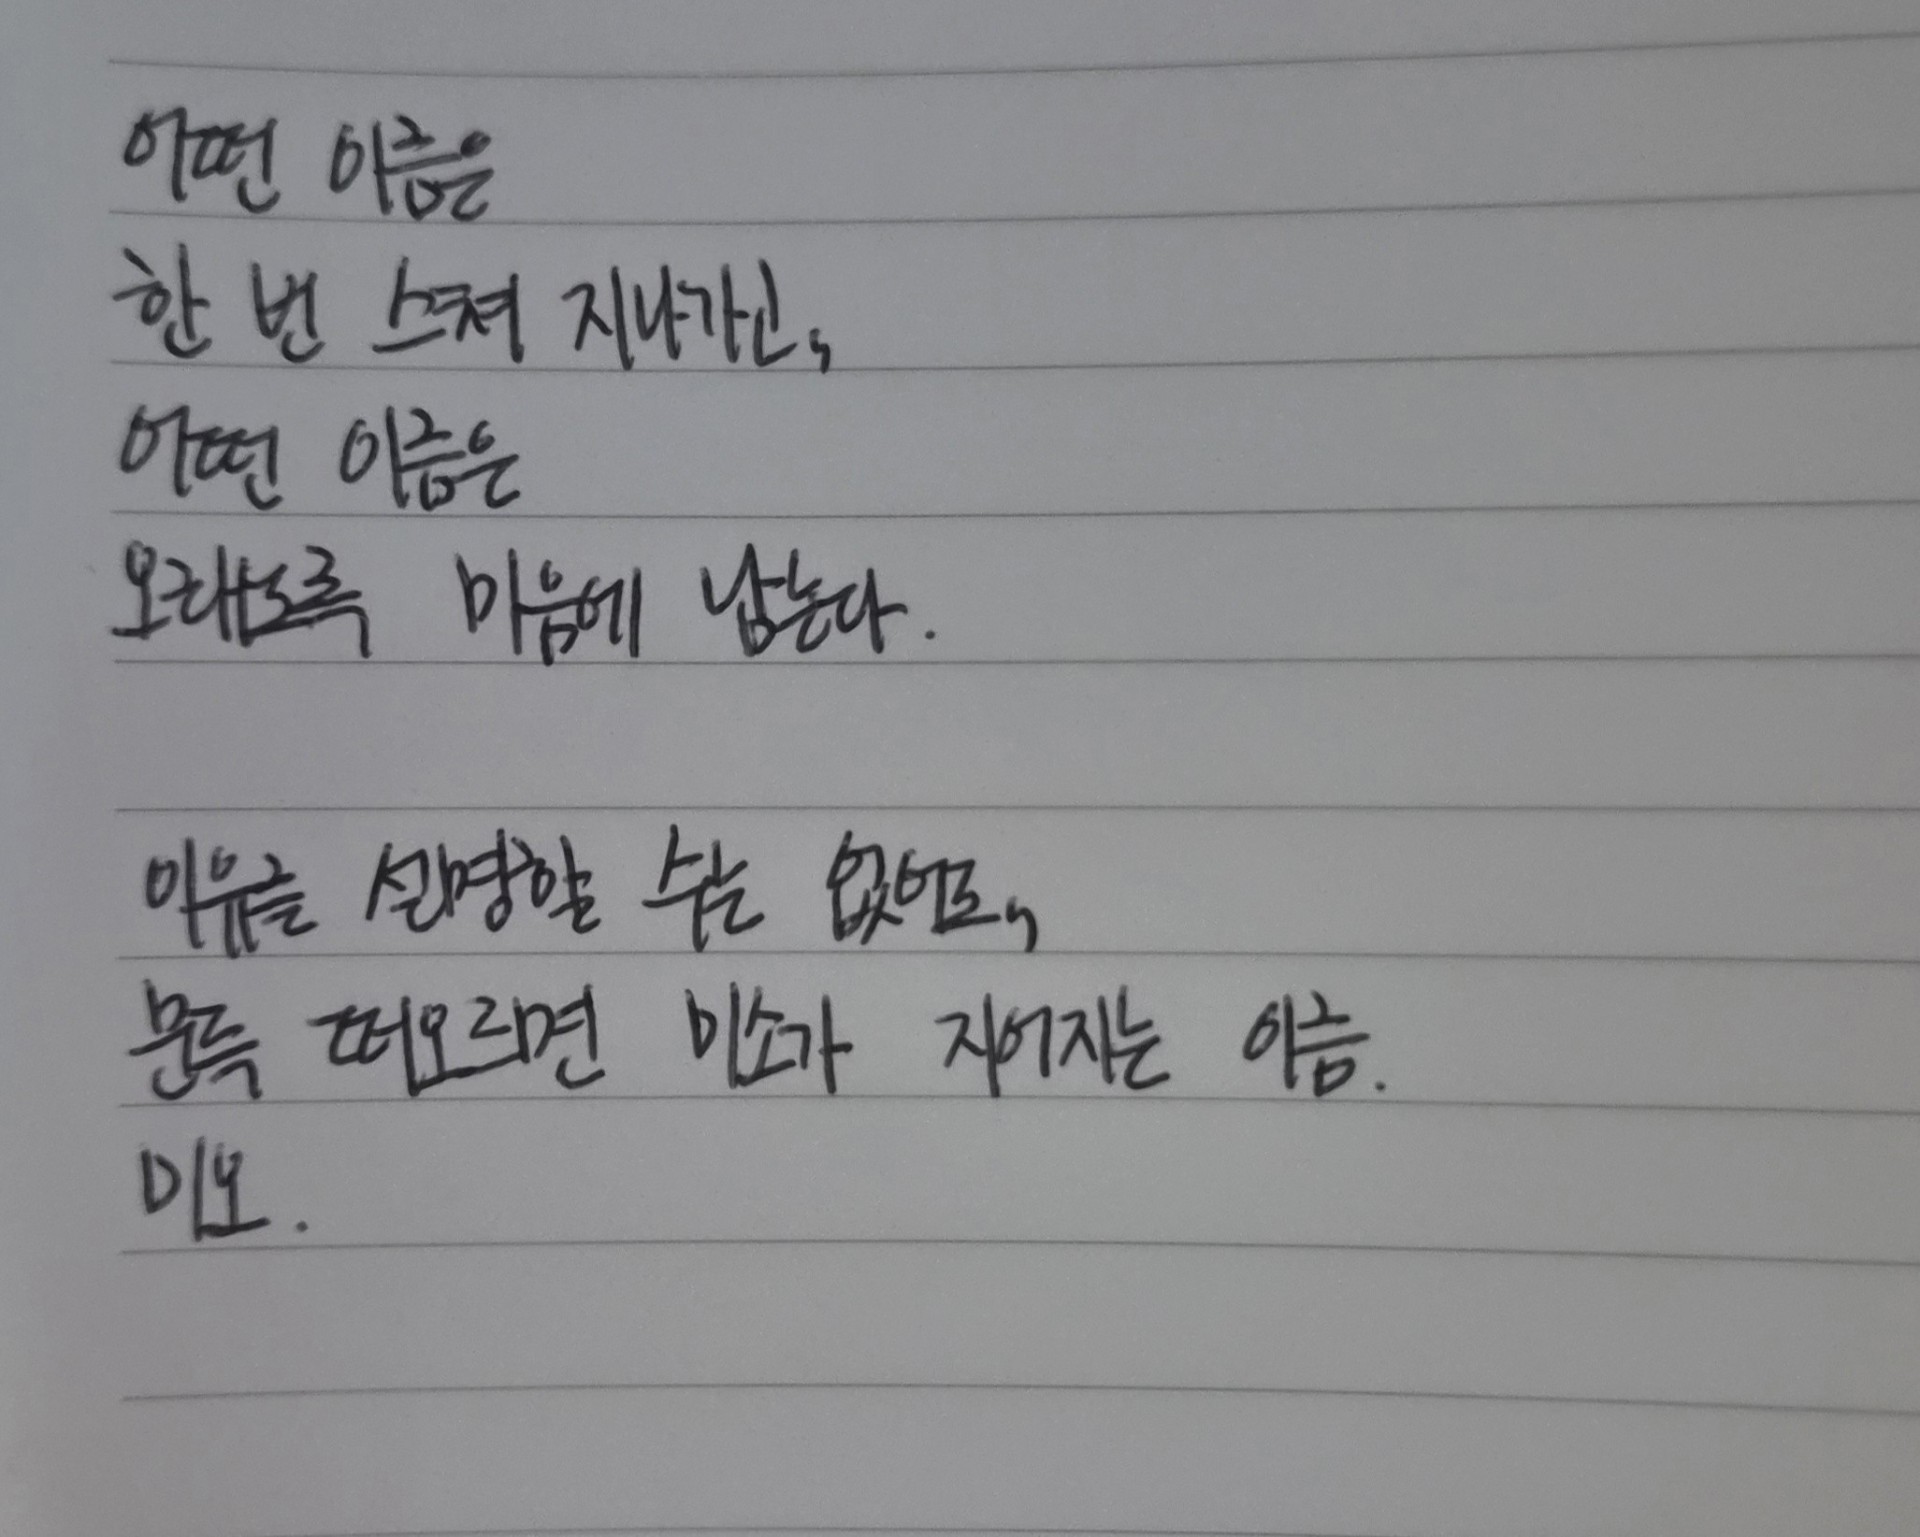 어떤 이름은
한 번 스쳐 지나가고,
어떤 이름은
오래도록 마음에 남는다.
이유를 설명할 수는 없어도,
문득 떠오르면 미소가 지어지는 이름.
미오.